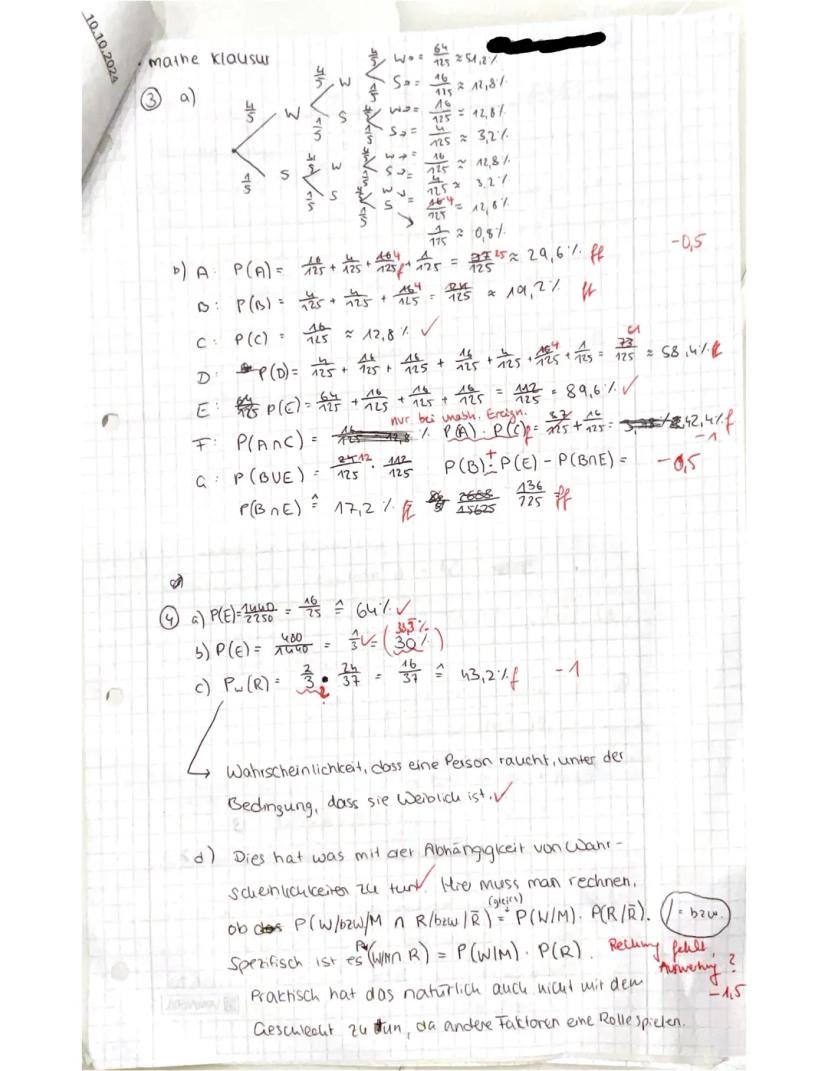 10.10.2024
• mathe Klausur
③ a)
4/5 W 4/5 W 4/5 W → = 64/125 ≈ 51,2%
1/5 S → = 16/125 ≈ 12,8%
1/5 S 4/5 W → = 16/125 = 12,8%
1/5 S → = 4/125 ≈ 3,2%
1/5 S 4/5 W 4/5 W → = 16/125 ≈ 12,8%
1/5 S → = 4/125 ≈ 3,2%
1/5 S 4/5 W → = 4/125 = 12,8%
1/5 S → 1/125 ≈ 0,8%
-0,5
b) A: P(A) = 16/125 + 4/125 + 16/125 4 f + 1/125 = 37/125 25 ≈ 29,6% ff
B: P(B) = 4/125 + 4/125 + 16/125 4 = 24/125 ≈ 19,2% ff
C: P(C) = 16/125 ≈ 12,8% ✓
D: P(D) = 4/125 + 16/125 + 16/125 + 16/125 + 4/125 + 16/125 4 + 1/125 = 73/125 61 ≈ 58,4% ff
E: P(E) = 64/125 + 16/125 + 16/125 + 16/125 = 112/125 = 89,6% ✓
nur bei unabh. Ereign.
F: P(A∩C) = P(A) · P(C) f = 37/125 + 16/125 = 42,4% f
-1
G: P(B∪E) = 24/125 12 · 112/125 P(B) + P(E) - P(B∩E) = -0,5
P(B∩E) ≙ 17,2% ff 2688/15625 136/125 ff
④ a) P(E) = 1440/2250 = 16/25 ≙ 64% ✓
33,3%
b) P(E) = 480/1440 = 1/3 ✓ = (30%)
c) Pw(R) = 2/3 · 24/37 = 16/37 ≙ 43,2% f -1
?
↳ Wahrscheinlichkeit, dass eine Person raucht, unter der
Bedingung, dass sie Weiblich ist. ✓
d) Dies hat was mit der Abhängigkeit von Wahr-
scheinlichkeiten zu tun ✓. Hie muss man rechnen,
(gleich)
ob P(W/bzw/M ∩ R/bzw/R̄) = P(W/M) · P(R/R̄). / = bzw.
Spezifisch ist es P(W/M ∩ R) = P(W/M) · P(R). Rechnung fehlt,
Auswertung?
Praktisch hat das natürlich auch nicht mit dem
-1,5
Geschlecht zu tun, da andere Faktoren eine Rolle spielen.